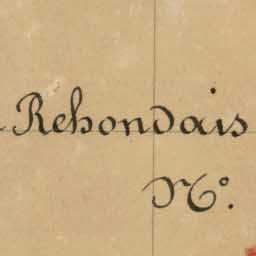 Rehondais
No.